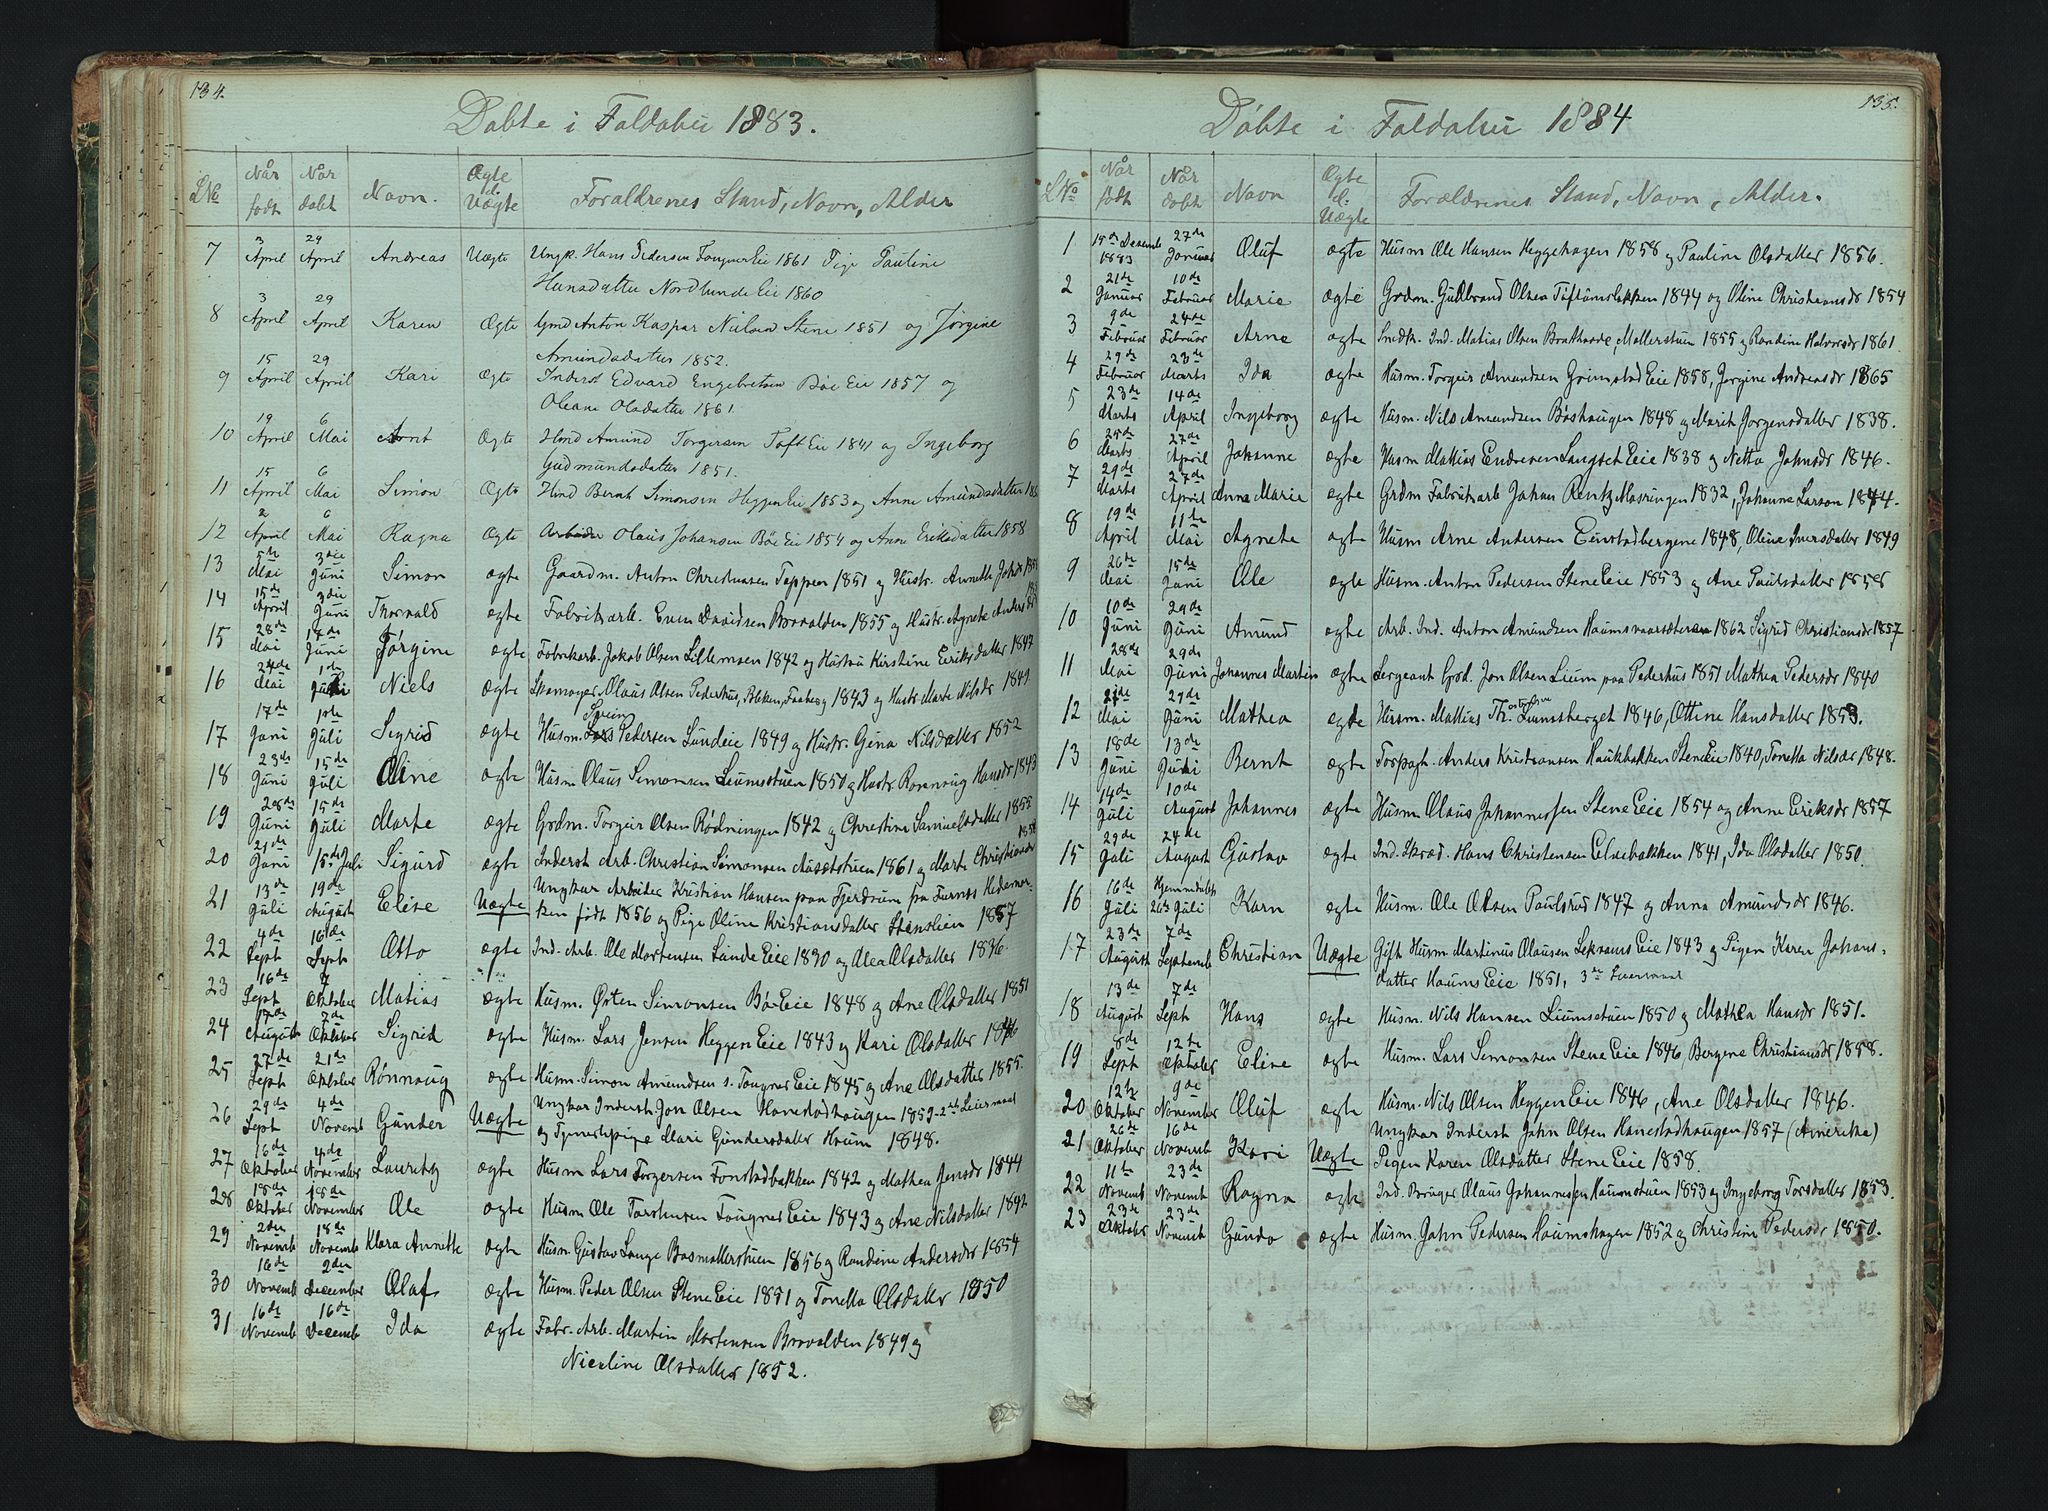 134.
Døbte i Foldahu 1883.
L No Når født Når døbt Navn. Ægte d. Uægte Forældrenes Stand, Navn, Alder
7 3 April 29 April Andreas Uægte Ungk. Hans Pedersen FougnerEie 1861 Pige Pauline
Hansdatter NordlundeEie 1860
8 3 April 29 April Karen Ægte Gmd Anton Kaspar Nielsen Stene 1851 og Jørgine
Amundsdatter 1852.
9 15 April 29 April Kari Ægte Inderst Edvard Engebretsen Bøe Eie 1857 og
Oleane Olsdatter 1861.
10 19 April 6 Mai Ægte Hmd Amund Torgersen Toft Eie 1841 og Ingeborg
Gudmundsdatter 1851.
11 15 April 6 Mai Simon Ægte Hmd Bernt Simonsen HeggenEie 1853 og Anne Amundsdatter
12 2 April 6 Mai Ragna Ægte Arbeider Olaus Johansen Bøe Eie 1854 og Anne Eriksdatter 1858
13 5te Mai 3die Juni Simon ægte Gaardm. Anton Christiansen Tappen 1851 og Hustr. Annette
14 15de April 3die Juni Thorvald ægte Fabrikarb. Even Davidsen Brovolden 1855 og Hustr. Agnete
15 28de Mai 17de Juni Jørgine ægte Fabrikarb. Jakob Olsen Lillemoen 1842 og Hustru Kirstine Eeriksdatter 1847
16 24de Mai 1ste Juli Niels ægte Skomager Olaus Olsen Pederhus, Bakken, Faaberg 1843 og Hustr. Marte Nilsdr 1849
17 17de Juni 1ste Juli Sigrid ægte Husm. Svein Pedersen Lundeie 1849 og Hustr. Gina Nilsdatter 1852
18 23de Juni 15de Juli Oline ægte Husm Olaus Simonsen Liumstuen 1850 og Hustr. Rønnaug Hansdr 1843
19 28de Juni 15de Juli Marte ægte Grdm. Torgeir Olsen Rødningen 1842 og Christine Samuelsdatter 1855
20 21de Juni 15de Juli Sigurd ægte Inderst Arb. Christian Simonsen Aasetstuen 1861 og Marte Christiansdr 1858
21 13de Juli 19de August Elise Uægte Ungkar Arbeider Kristian Hansen paa Fjerdrum fra Furnes Hedemar-
ken født 1856 og Pige Oline Kristiansdatter Stenslien 1857
22 4de Sept 16de Sept Otto ægte Ind. Arb. Ole Mortensen Lunde Eie 1830 og Alea Olsdatter 1836.
23 16de Sept 7 Oktober Matias ægte Husm. Østen Simonsen BøeEie 1848 og Ane Olsdatter 1851
24 17de August 7de Oktober Sigrid ægte Husm. Lars Jensen HeggenEie 1843 og Kari Olsdatter 1846
25 27de Sept 21de Oktober Rønnaug ægte Husm. Simon Amundsen s. FougnerEie 1845 og Ane Olsdatter 1855.
26 29de Sept 4de Novemb Gunder Uægte Ungkar Inderst Jon Olsen Hanestadhaugen 1859 - 2det Leiermaal
og Tjenestepige Mari Gundersdatter Houm 1848.
27 16de Oktober 4de November Lauritz ægte Husm Lars Torgersen Fonstadbakken 1842 og Mathea Jensdr 1844
28 18de Oktober 18de November Ole ægte Husm Ole Torstensen FougnerEie 1843 og Ane Nilsdatter 1842
29 2den Novemb 18de Novemb Klara Annette ægte Husm. Gustav Lange Basmollerstuen 1856 og Randine Andersdr 1854
30 16de Novemb 2den December Olaf ægte Husm. Peder Olsen SteneEie 1851 og Tonetta Olsdatter 1850
31 16de Novemb 16de Decemb Ida ægte Fabr. Arb. Martin Mortensen Brovolden 1849 og
Nicoline Olsdatter 1852.
135.
Døbte i Foldahu 1884
L No Når født Når døbt Navn Ægte d: Uægte Forældrenes Stand, Navn, Alder.
1 15de Decemb 1883 27de Januar Oluf ægte Husm Ole Hansen Heggehagen 1858 og Pauline Olsdatter 1856.
2 21de Januar 10de Februar Marie ægte Grdm. Guldbrand Olsen Toftumsløkken 1844 og Oline Christiansdr 1854
3 9de Februar 24de Februar Arne ægte Smedk. Ind. Matias Olsen Møllerstuen 1855 og Randine Halvorsdr 1861.
4 29de Februar 23de Marts Ida ægte Husm. Torgeir Amundsen GrimstadEie 1858, Jørgine Andreasdr 1865
5 23de Marts 14de April Ingeborg ægte Husm. Nils Amundsen Bøshaugen 1848 og Marit Jørgensdatter 1838.
6 25de Marts 27de April Johanne ægte Husm Mathias Endresen LangsetEie 1838 og Netta Johnsdr 1846.
7 29de Marts 27de April Anna Marie ægte Grdm Fabrikarb Johan Rentz Masringen 1832, Johanne Larson 1844.
8 19de April 11te Mai Agnete ægte Husm Arne Andersen Einstadbergene 1848, Oline Iversdatter 1849
9 26de Mai 15de Juni Ole ægte Husm. Anton Pedersen SteneEie 1853 og Ane Paulsdatter 1858
10 10de Juni 29de Juni Amund ægte Arb. Ind. Anton Amundsen Houmsvaarsæteren 1862 Sigrid Christiansdr 1857
11 28de Mai 29de Juni Johannes Martin ægte Sergeant Grd. Jon Olsen Lium paa Pederhus 1851 Mathea Pedersdr 1840
12 21de Mai 29de Juni Mathea ægte Husm. Mattias Th. Liumsberget 1846, Ottine Hansdatter 1853.
13 18de Juni 13de Juli Bernt ægte Torpagt. Anders Kristiansen Haukbakken SteneEie 1840, Tonetta Nilsdr 1848.
14 14de Juli 10de August Johannes ægte Husm Olaus Johannessen SteneEie 1854 og Anne Eeriksdr 1857
15 29de Juli 24de August Gustav ægte Ind. Skræd. Hans Christensen Eelvebakken 1841, Ida Olsdatter 1850.
16 16de Juli Hjemmedøbt 26de Juli Karn ægte Husm. Ole Olsen Paulsrud 1847 og Anna Amundsdr 1846.
17 23de August 7de Septemb Christian Uægte Gift Husm Martinus Olausen LekramsEie 1843 og Pigen Karen Johans-
datter HoumsEie 1851, 3de Leiermaal
18 13de August 7de Sept Hans ægte Husm. Nils Hansen Liumstuen 1850 og Mathea Hansdr 1851.
19 8de Sept 12te Oktober Eline ægte Husm. Lars Simonsen SteneEie 1846, Bergene Christiansdr 1858.
20 12te Oktober 9de November Oluf ægte Husm. Nils Olsen HeggenEie 1846, Ane Olsdatter 1846.
21 26de Oktober 16de Novemb Kari Uægte Ungkar Inderst John Olsen Hanestadhaugen 1857 (Amerika)
Pigen Karen Olsdatter SteneEie 1858.
22 11te Novemb 23de Novemb Ragna ægte Ind. Bruger Olaus Johannessen Houmstuen 1853 og Ingeborg Torsdatter 1853.
23 23de Oktober 23de Novemb Gunda ægte Husm. John Pedersen Houmshagen 1852 og Christine Pedersdr 1850.